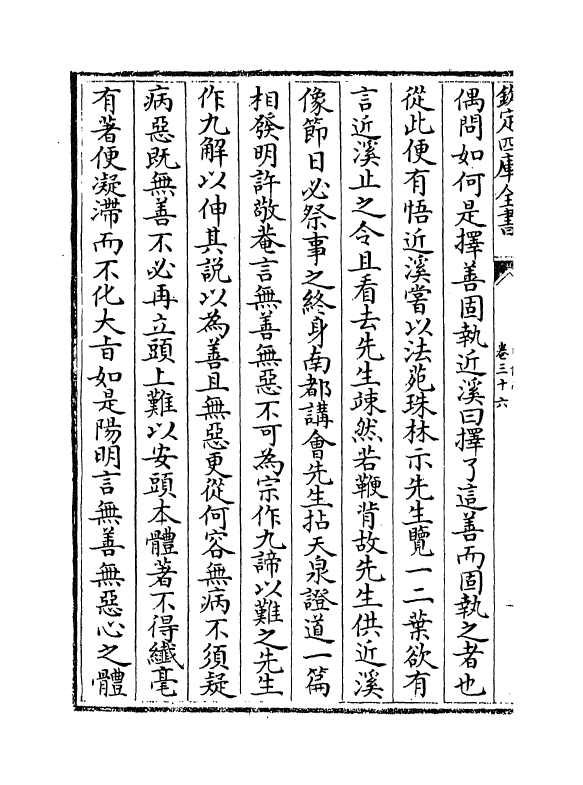 欽定四庫全書
卷三十六
偶問如何是擇善固執近溪曰擇了這善而固執之者也
從此便有悟近溪嘗以法苑珠林示先生覽一二葉欲有
言近溪止之令且看去先生竦然若鞭背故先生供近溪
像節日必祭事之終身南都講會先生拈天泉證道一篇
相發明許敬菴言無善無惡不可為宗作九諦以難之先生
作九解以伸其說以為善且無惡更從何容無病不須疑
病惡既無善不必再立頭上難以安頭本體著不得纎毫
有著便凝滯而不化大㫖如是陽明言無善無惡心之體